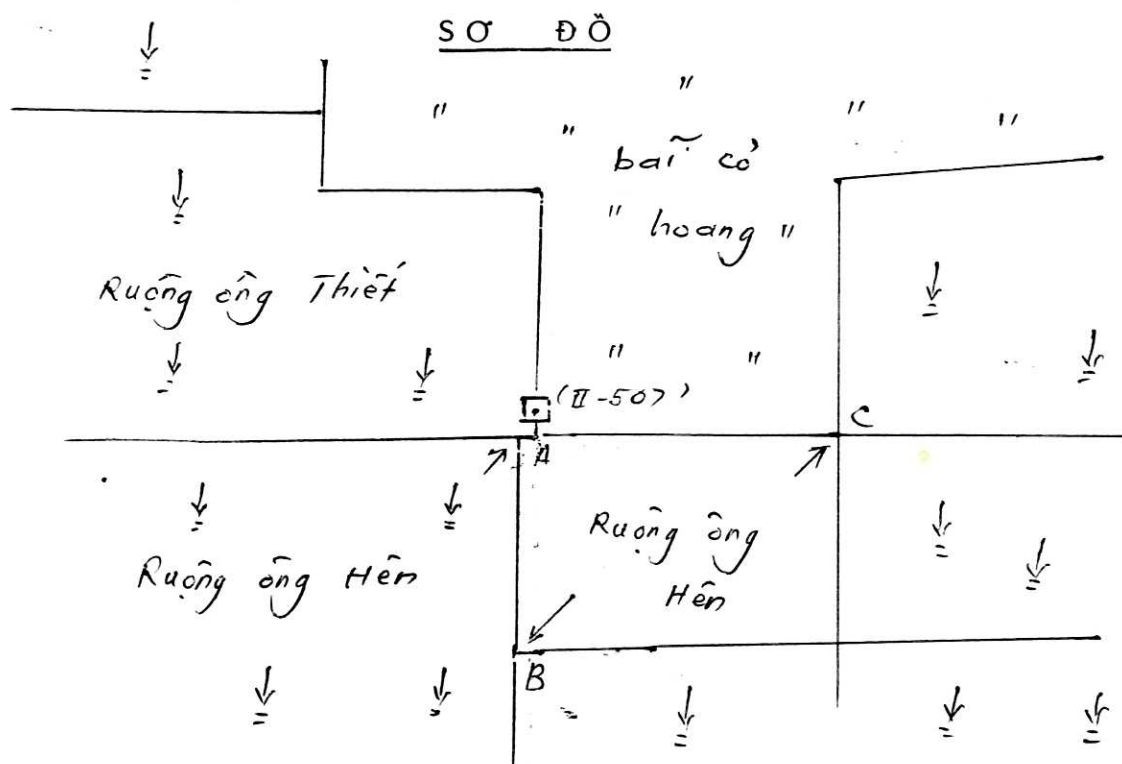 SƠ ĐỒ
bãi cỏ
hoang
Ruộng ông Thiết
(II-507)
A
C
Ruộng ông Hên
Ruộng ông
Hên
B